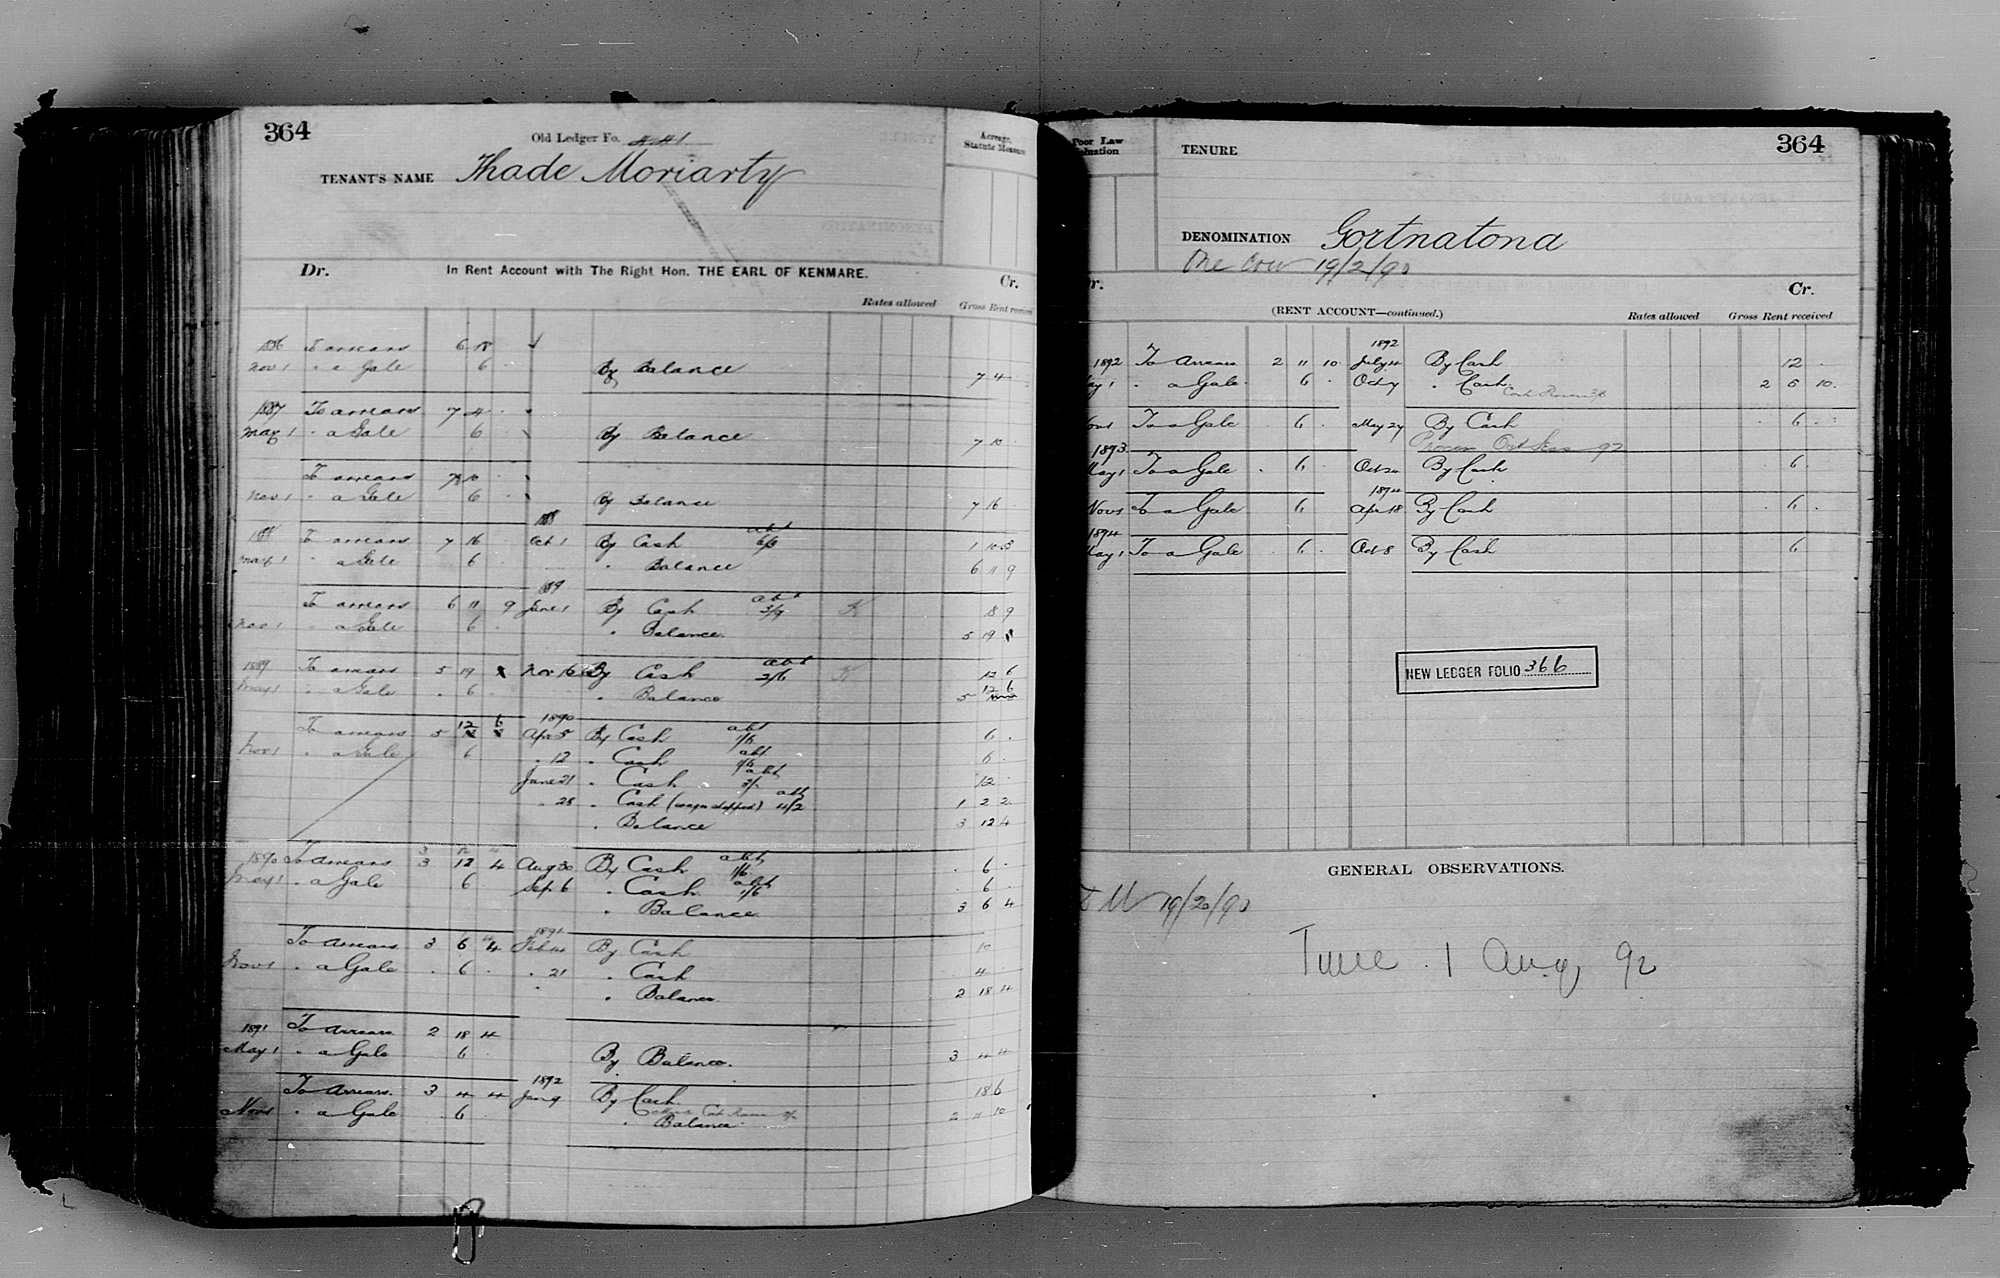 364
Old Ledger Fo. 441
TENANT'S NAME Thade Moriarty
Acreage, Statute Measure
Dr. In Rent Account with The Right Hon. THE EARL OF KENMARE. Cr.
Rates allowed Gross Rent received
1886 To arrears 6 18
Nov 1 " a Gale 6 By Balance 7 4
1887 To arrears 7 4
May 1 " a Gale 6 By Balance 7 10
To arrears 7 10
Nov 1 " a Gale 6 By Balance 7 16
1888
1888 To arrears 7 16 Oct 1 By Cash abt 6/3 1 10 3
May 1 " a Gale 6 " Balance 6 11 9
1889
To arrears 6 11 9 June 1 By Cash abt 3/9 K 8 9
Nov 1 " a Gale 6 " Balance. 5 19
1889 To arrears 5 19 Nov 16 By Cash abt 2/6 K 12 6
May 1 " a Gale 6 " Balance 5 12 6
1890
To arrears 5 12 6 Apr 5 By Cash abt 1/6 6
Nov 1 " a Gale 6 " 12 " Cash abt 1/6 6
June 21 " Cash abt 3/- 12
" 28 " Cash (wages stopped) abt 11/2 1 2 2
" Balance 3 12 4
3 12 4
1890 To arrears 3 12 4 Aug 30 By Cash abt 1/6 6
May 1 " a Gale 6 Sep 6 " Cash abt 1/6 6
" Balance 3 6 4
1891
To Arrears 3 6 4 Feb 14 By Cash 10
Nov 1 " a Gale 6 " 21 " Cash 4
" Balance. 2 18 4
1891 To Arrears 2 18 4
May 1 " a Gale 6 By Balance. 3 4 4
1892
To Arrears. 3 4 4 Jan 9 By Cash. 18 6
Nov 1 " a Gale 6 " Balance 2 11 10
Poor Law Valuation
TENURE
364
DENOMINATION Gortnatona
One Cow 19/2/90
Dr. Cr.
(RENT ACCOUNT—continued.)
Rates allowed Gross Rent received
1892
1892 To Arrears 2 11 10 July 4 By Cash 12
May 1 " a Gale 6 Oct 4 " Cash 2 5 10
Nov 1 To a Gale 6 May 27 By Cash 6
Process Oct Sess 92
1893
May 1 To a Gale 6 Oct 20 By Cash 6
1894
Nov 1 To a Gale 6 Apr 18 By Cash 6
1894
May 1 To a Gale 6 Oct 8 By Cash 6
NEW LEDGER FOLIO 366
GENERAL OBSERVATIONS.
19/20/90
Time 1 Aug 92